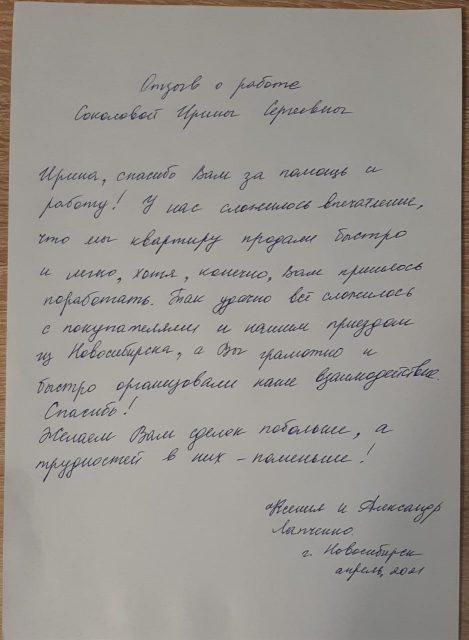 Отзыв о работе
Соколовой Ирины Сергеевны
Ирина, спасибо Вам за помощь и
работу! У нас сложилось впечатление,
что мы квартиру продали быстро
и легко, хотя, конечно, Вам пришлось
поработать. Так удачно всё сложилось
с покупателями и нашим приездом
из Новосибирска, а Вы грамотно и
быстро организовали наше взаимодействие.
Спасибо!
Желаем Вам сделок побольше, а
трудностей в них - поменьше!
Ксения и Александр
Лапченко
г. Новосибирск
апрель, 2021